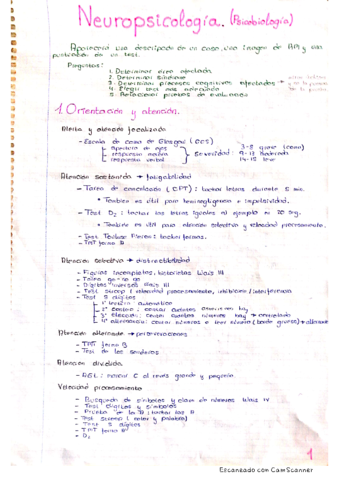 Neuropsicología. (Psicobiología)
Aparecerá una descripción de un caso, una imagen de RM y una
puntuación de un test.
Preguntas:
1. Determinar área afectada
2. Determinar síndrome
3. Determinar procesos cognitivos afectados
4. Elegir test más adecuado
5. Relacionar pruebas de evaluación
1. Orientación y atención.
Alerta y atención focalizada
- Escala de coma de Glasgow (GCS)
apertura de ojos
respuesta motora
respuesta verbal
Severidad:
3-8 grave (coma)
9-13 moderada
14-15 leve
Atención sostenida → fatigabilidad
- Tarea de cancelación (CPT): tachar letras durante 5 min.
* También es útil para heminegligencia e impulsividad.
- Test D2: tachar las letras iguales al ejemplo en 20 sg.
* También es útil para atención selectiva y velocidad procesamiento.
- Test Toulouse Pieron: tachar formas.
- TMT forma A
Atención selectiva → distractibilidad
- Figuras incompletas, historietas Wais III
- Tarea go-no go
- Dígitos inversos Wais III
- Test stroop (velocidad procesamiento, inhibición/interferencia)
- Test 5 dígitos
1º lectura: automático
2º conteo: contar cuántos asteriscos hay
3º elección: contar cuántos números hay → complejo
4º alternancia: contar números o leer número (borde grueso) → alternar
Atención alternante → perseveraciones
- TMT forma B
- Test de los senderos
Atención dividida
Velocidad procesamiento
- Búsqueda de símbolos y clave de números Wais IV
- Test dígitos y símbolos
- Test stroop (color y palabra)
- Test 5 dígitos
- TMT forma A
- D2
1
Escaneado con CamScanner